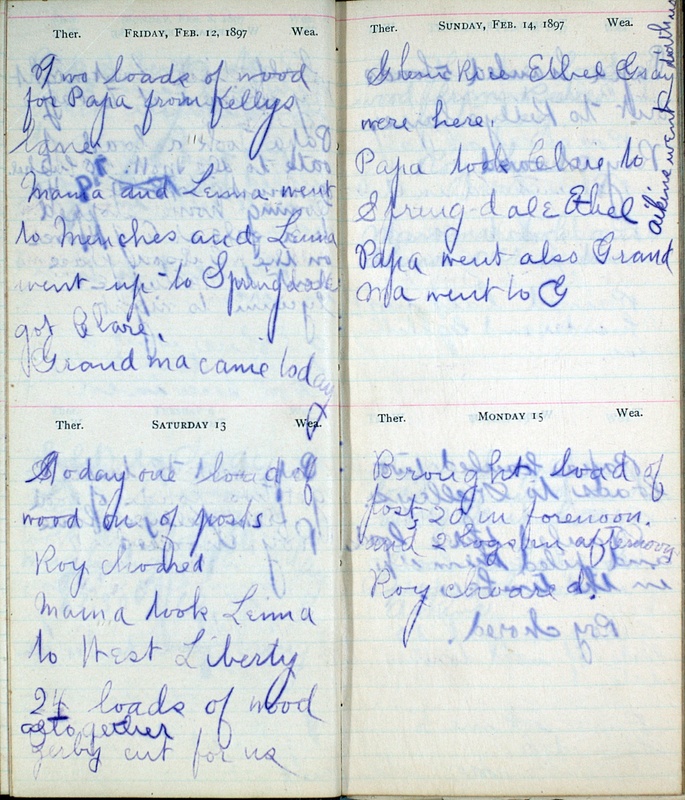 Ther. FRIDAY, FEB. 12, 1897 Wea.
Two loads of wood
for Papa from Kellys
lane.
Mama and Lenna went
to Menches and Lenna
went up to Springdale
got Clare.
Grand ma came today
Ther. SATURDAY 13 Wea.
Today one load of
wood on of posts
Roy chored
Mama took Lenna
to West Liberty
24 loads of wood
altogether
cut for us
Ther. SUNDAY, FEB. 14, 1897 Wea.
Ethel Gray
were here.
Papa took Clare to
Spring-dale Ethel
Papa went also Grand
Ma went to G
Atkins went
Ther. MONDAY 15 Wea.
Brought load of
post 20 in forenoon.
and 2 logs in afternoon
Roy choared.